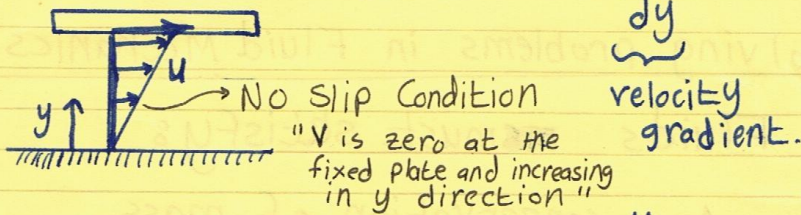 dy
u
No Slip Condition
velocity
gradient.
y
"V is zero at the
fixed plate and increasing
in y direction"